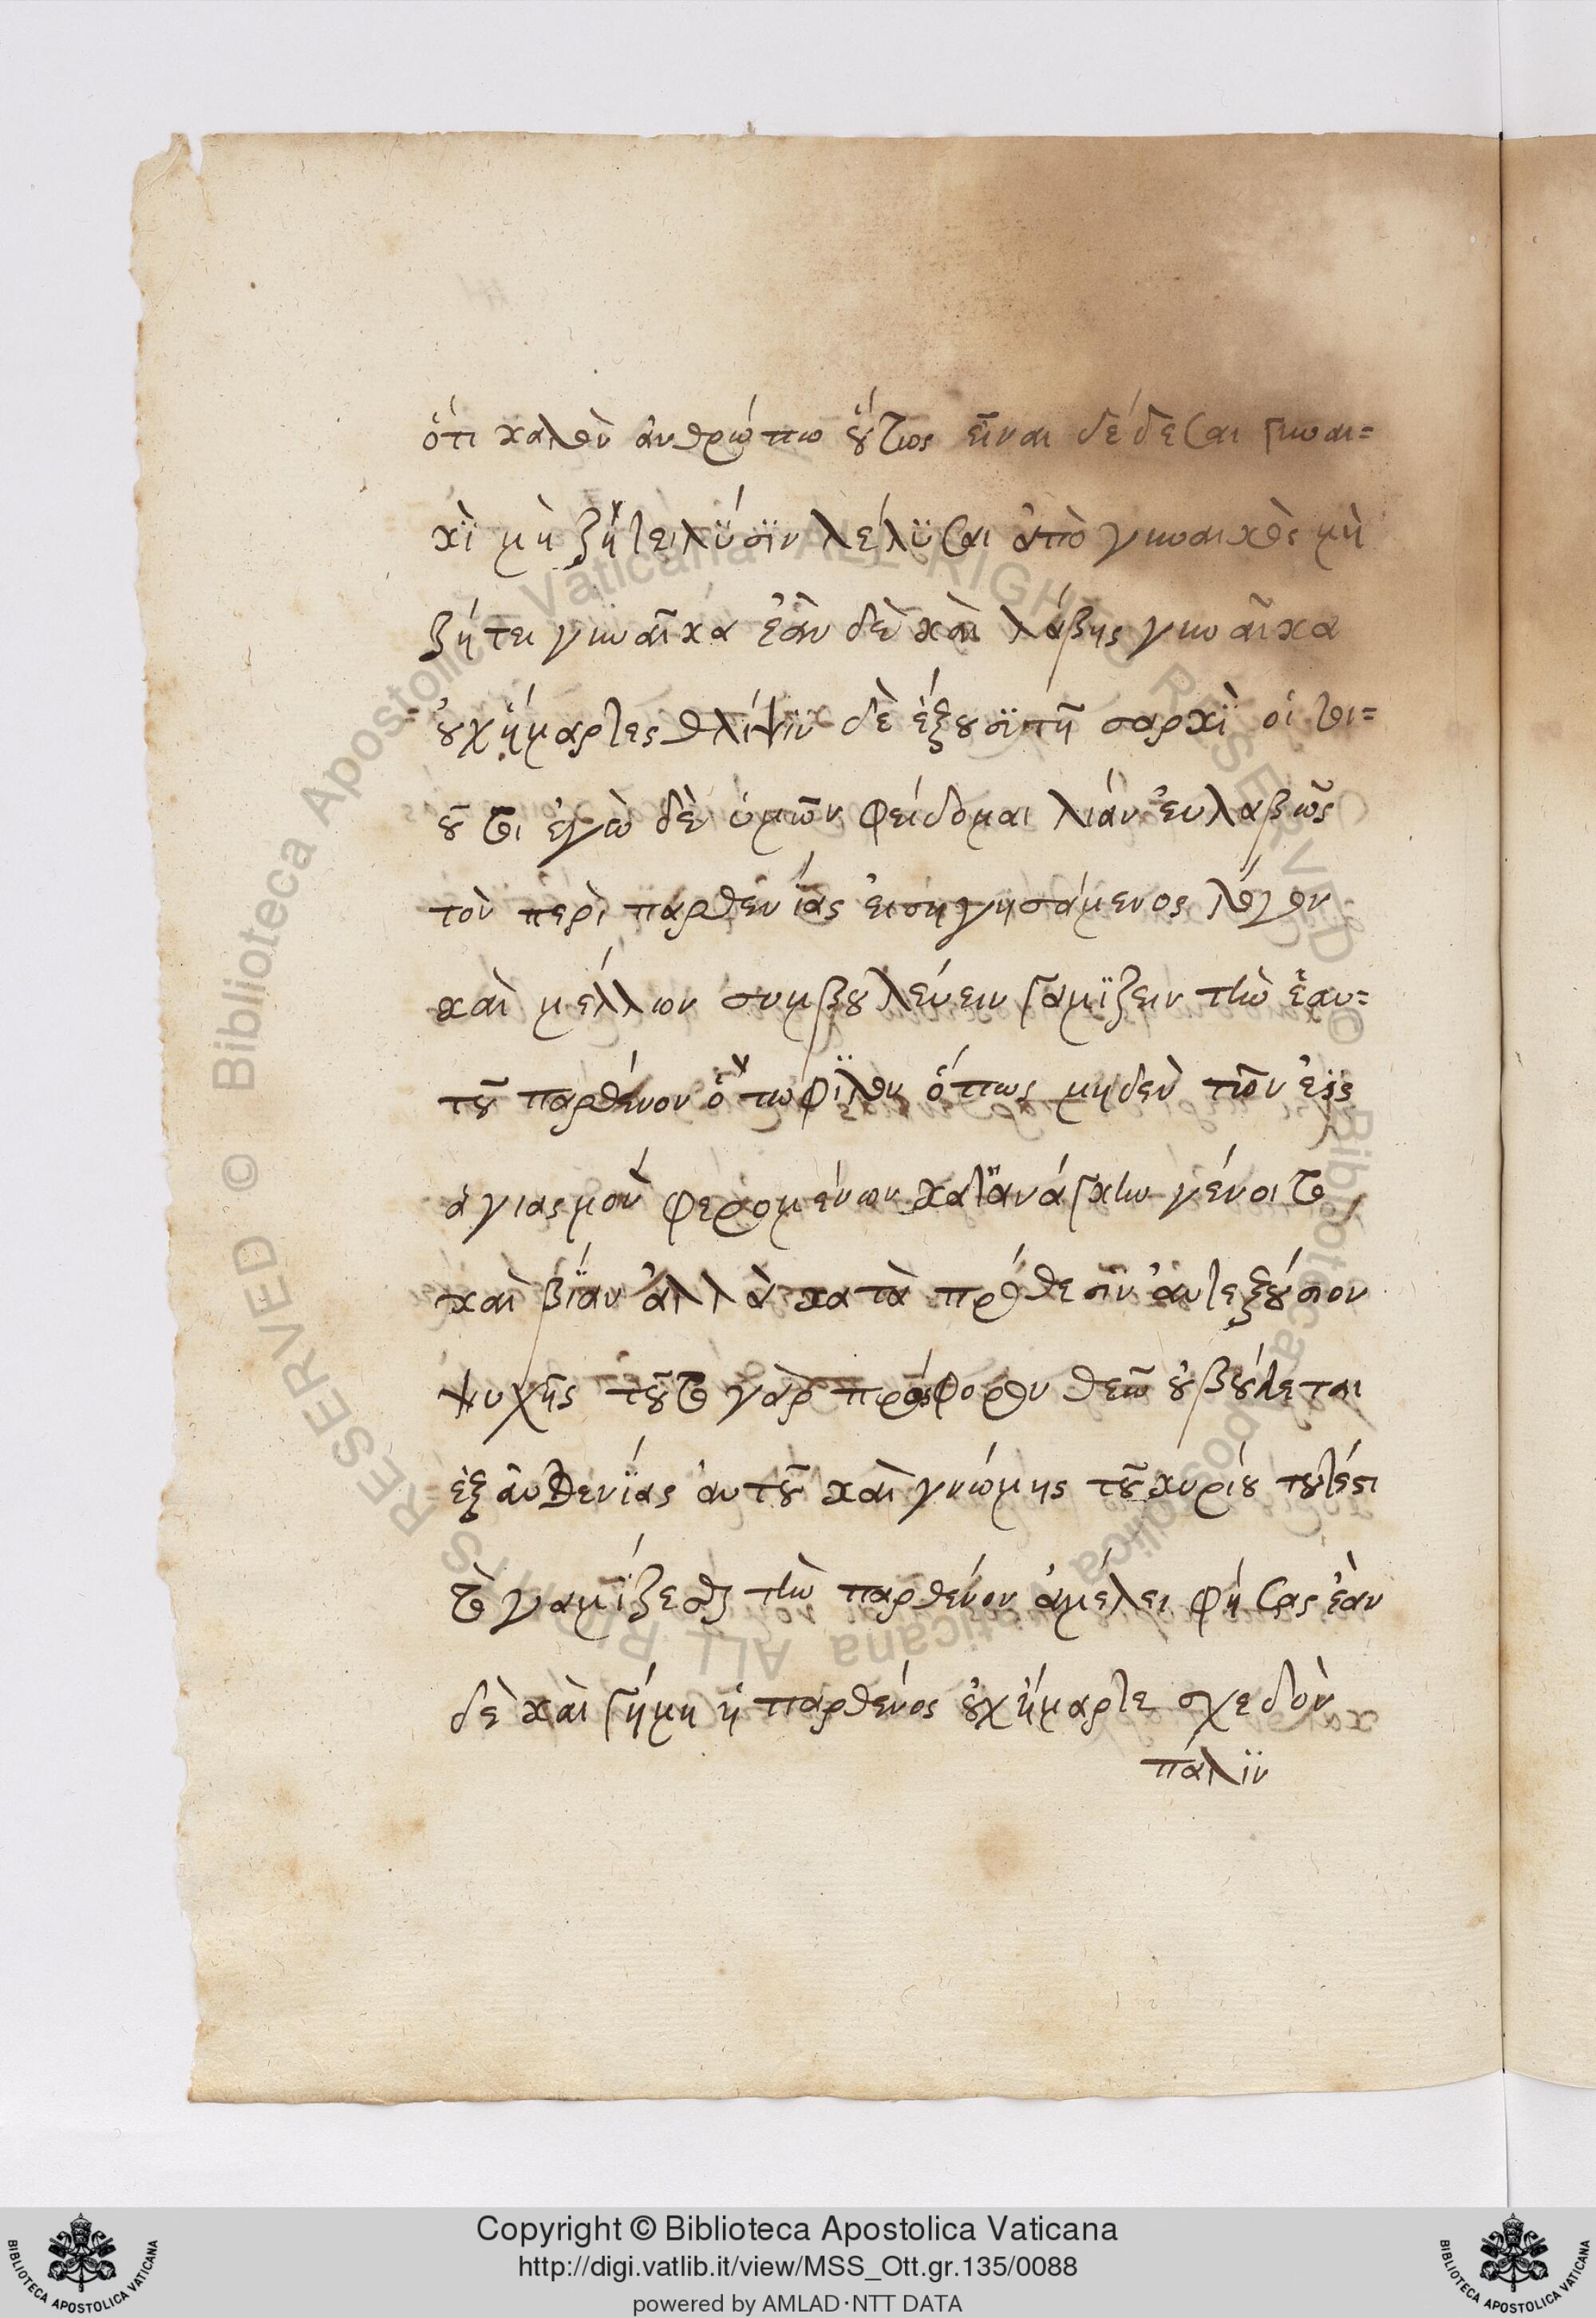 ὅτι καλὸν ἀνθρώπω οὕτως εἶναι δέδεσαι γυναι=
κῒ μὴ ζήτει λϋσϊν λέλϋσαι ἀπὸ γυναικὸς μὴ
ζήτει γυναῖκα ἐὰν δὲ καὶ λάβης γυναῖκα
οὐχ ἥμαρτες θλίψϊν δὲ ἕξουσϊ τῆ σαρκῒ οἱ τοι=
οῦτοι ἐγὼ δὲ ὑμῶν φείδομαι λιὰν ἐυλαβῶς
τὸν περὶ παρθενΐας ἐισηγησάμενος λόγον
καὶ μέλλων συμβουλεύειν γαμΐζειν τὴν ἑαυ=
τοῦ παρθένον ὅτω φΐλον ὅπως μηδὲν τῶν ἐις
ἁγιασμὸν φερομένων κατ' ἀνάγκην γένοιτο
καὶ βΐαν ἀλλὰ κατὰ πρόθεσϊν ἀυτεξούσιον
ψυχῆς τοῦτο γὰρ πρόσφορον θεῶ οὐ βούλεται
ἐξ ἀυθενΐας ἀυτοῦ καὶ γνώμης τοῦ κυρίου τουτέστι
τὸ γαμΐζεσθαι τὴν παρθένον ἀμέλει φήσας ἐὰν
δὲ καὶ γήμη ἡ παρθένος οὐχ ἥμαρτε σχεδὸν
πάλϊν
Copyright © Biblioteca Apostolica Vaticana
http://digi.vatlib.it/view/MSS_Ott.gr.135/0088
powered by AMLAD·NTT DATA
BIBLIOTECA APOSTOLICA VATICANA
BIBLIOTECA APOSTOLICA VATICANA
© Biblioteca Apostolica Vaticana ALL RIGHTS RESERVED
© Biblioteca Apostolica Vaticana ALL RIGHTS RESERVED